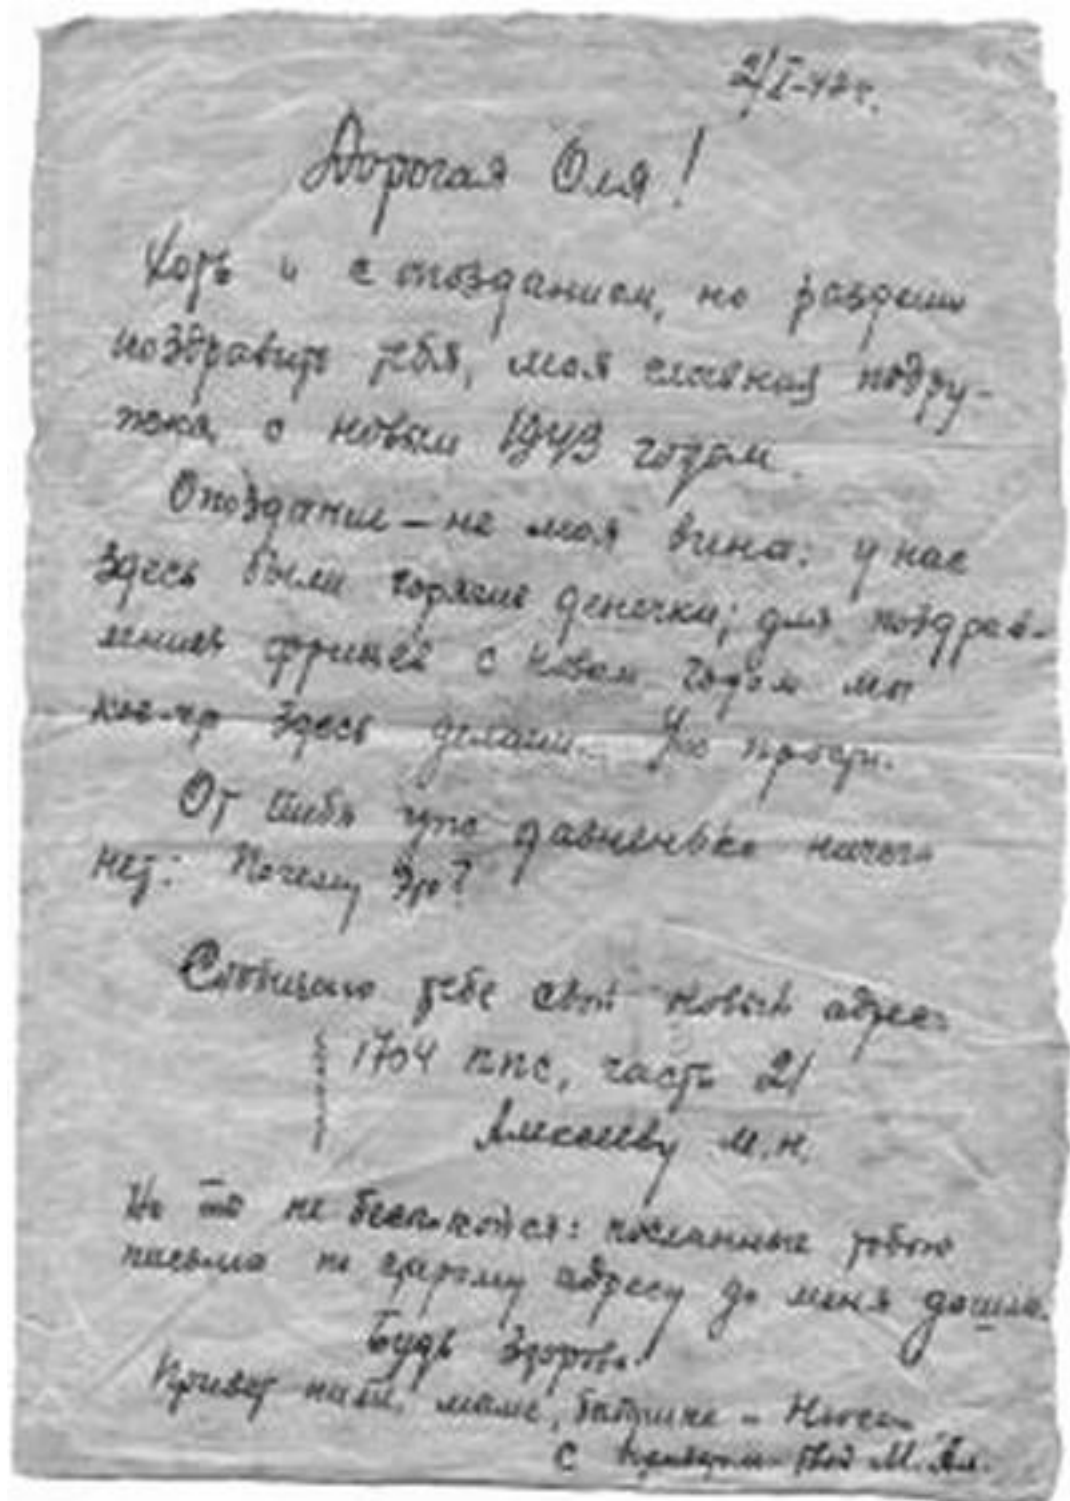 2/I-43 г.
Дорогая Оля!
Хоть и с опозданием, но разреши
поздравить тебя, моя славная подру-
жка, с новым 1943 годом.
Опоздание – не моя вина: у нас
здесь были горячие денечки; для поздрав-
ления фрицев с новым годом мы
кое-что здесь делали. Уж прости.
От тебя что давненько ничего
нет. Почему это?
Сообщаю тебе свой новый адрес:
1704 ппс, часть 21
Алексееву М.Н.
Но ты не беспокойся: посланные тобою
письма по старому адресу до меня дошли.
Будь здорова.
Привет маме,
С приветом твой М. Ал.